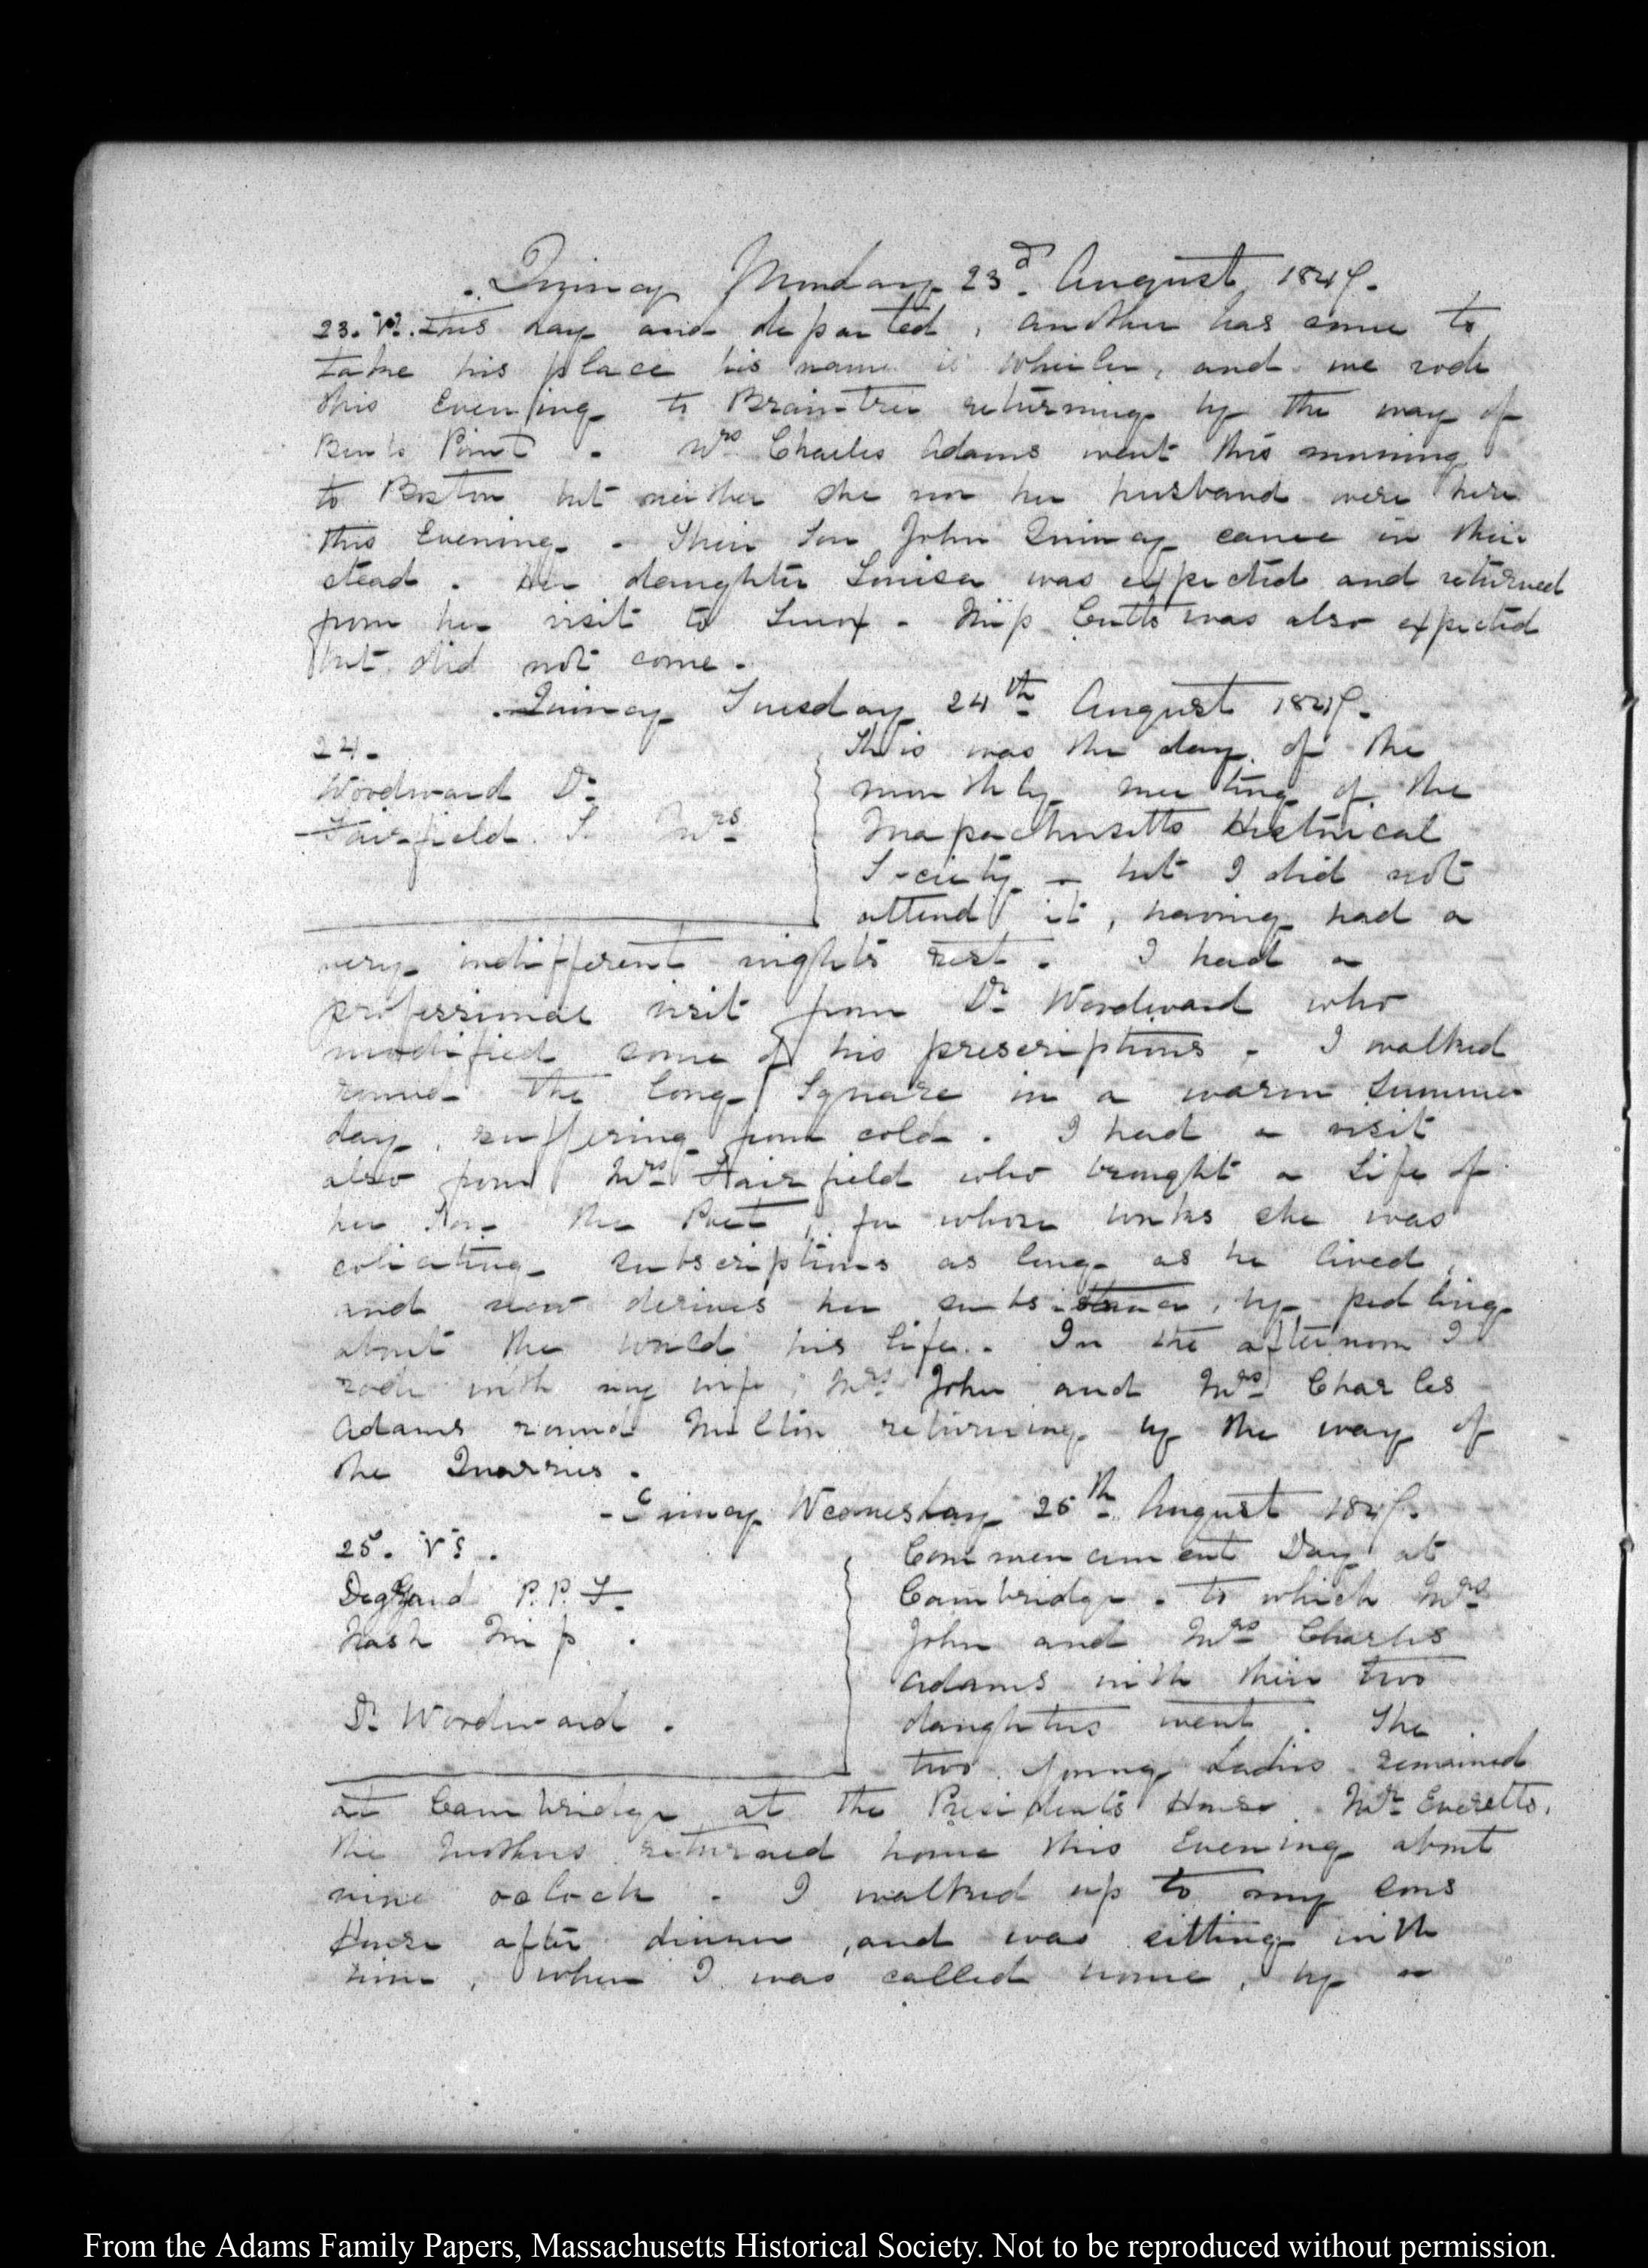 Quincy Monday 23d. August 1847.
23. V. This day and departed, another has come to
take his place his name is Wheeler, and we rode
this Evening to Braintree returning by the way of
Bents Point. Mrs. Charles Adams went this morning
to Boston but neither she nor her husband were here
this Evening. Their Son John Quincy came in their
stead. Her daughter Louisa was expected and returned
from her visit to Lenox. Miss Cutts was also expected
but did not come.
Quincy Tuesday 24th. August 1847.
24.
Woodward Dr.
Fairfield S. Mrs
This was the day of the
monthly meeting of the
Massachusetts Historical
Society - but I did not
attend it, having had a
very indifferent nights rest. I had a
professional visit from Dr. Woodward who
modified some of his prescriptions. I walked
round the long Square in a warm summer
day, suffering from cold. I had a visit
also from Mrs. Fairfield who brought a Life of
her Son the Poet, for whose works she was
soliciting subscriptions as long as he lived,
and now derives her subsistance, by pedling
about the world his life. In the afternoon I
rode with my wife, Mrs. John and Mrs. Charles
Adams round Milton returning by the way of
the Quarries.
Quincy Wednesday 25th. August 1847.
25. Vs.
Degrand P. P. F.
Nash Miss.
Dr. Woodward.
Commencement Day at
Cambridge. to which Mrs.
John and Mrs. Charles
Adams with their two
daughters went. The
two young Ladies remained
at Cambridge at the Presidents House Mr. Everetts.
the Mothers returned home this Evening about
nine oclock. I walked up to my sons
House after dinner, and was sitting with
him, when I was called home, by a
From the Adams Family Papers, Massachusetts Historical Society. Not to be reproduced without permission.